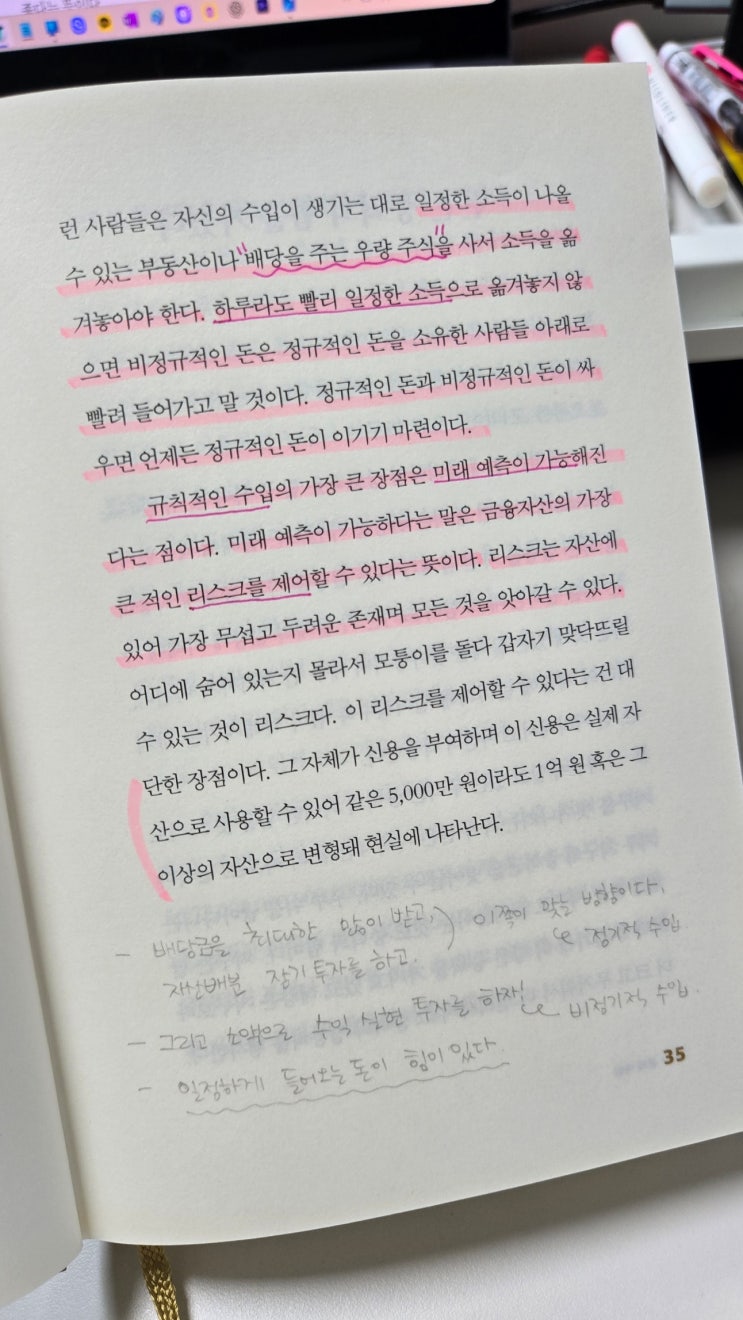 런 사람들은 자신의 수입이 생기는 대로 일정한 소득이 나올
수 있는 부동산이나 "배당을 주는 우량 주식"을 사서 소득을 옮
겨놓아야 한다. 하루라도 빨리 일정한 소득으로 옮겨놓지 않
으면 비정규적인 돈은 정규적인 돈을 소유한 사람들 아래로
빨려 들어가고 말 것이다. 정규적인 돈과 비정규적인 돈이 싸
우면 언제든 정규적인 돈이 이기기 마련이다.
규칙적인 수입의 가장 큰 장점은 미래 예측이 가능해진
다는 점이다. 미래 예측이 가능하다는 말은 금융자산의 가장
큰 적인 리스크를 제어할 수 있다는 뜻이다. 리스크는 자산에
있어 가장 무섭고 두려운 존재며 모든 것을 앗아갈 수 있다.
어디에 숨어 있는지 몰라서 모퉁이를 돌다 갑자기 맞닥뜨릴
수 있는 것이 리스크다. 이 리스크를 제어할 수 있다는 건 대
단한 장점이다. 그 자체가 신용을 부여하며 이 신용은 실제 자
산으로 사용할 수 있어 같은 5,000만 원이라도 1억 원 혹은 그
이상의 자산으로 변형돼 현실에 나타난다.
- 배당금을 최대한 많이 받고, ) 이쪽이 맞는 방향이다.
자산배분 장기 투자를 하고. 정기적 수입
- 그리고 소액으로 수익 실현 투자를 하자! 비정기적 수입.
- 일정하게 들어오는 돈이 힘이 있다.
35